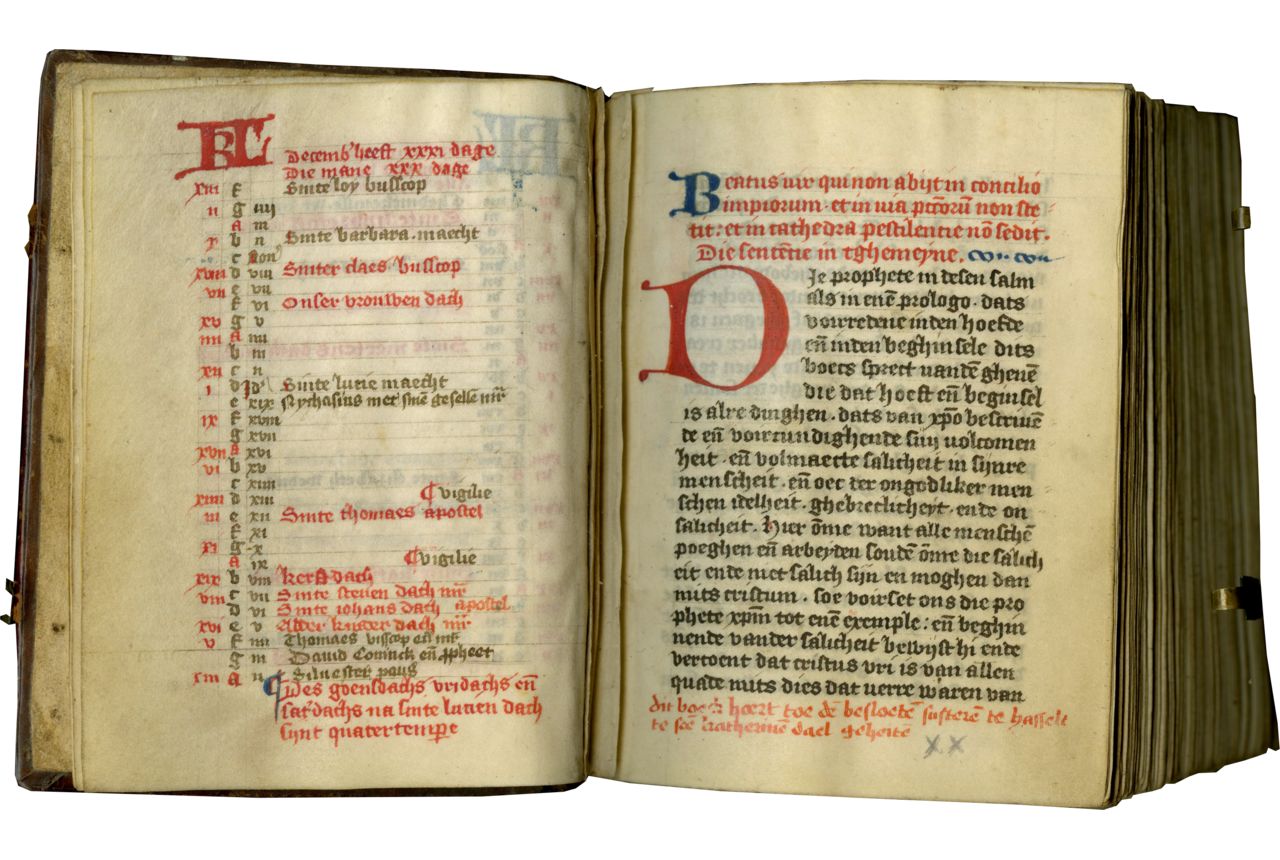 KL
Decemb' heeft xxxi dage
Die mane xxx dage
xiii f Sinte loy busscop
g iiii
ii A iii
x b ii Sinte barbara. maecht
c Non
xviii d viii Sinter claes busscop
vii e vii
f vi Onser vrouwen dach
xv g v
iiii A iiii
b iii
xii c ii
i d Id' Sinte lucie maecht
e xix Nychasius met sinē geselle mr̄
ix f xviii
g xvii
xvii A xvi
vi b xv
c xiiii
xiiii d xiii vigilie
iii e xii Sinte thomaes apostel
f xi
xi g x
A ix vigilie
xix b viii kersdach
viii c vii Sinte steuen dach mr̄
d vi Sinte iohans dach apostel
xvi e v Alder kinder dach mr̄
v f iiii Thomaes bisscop eñ mr̄
g iii David Coninck eñ ꝓpheet
xiii A ii Siluester paus
Des goensdachs vridachs eñ
sat'dachs na sinte lucien dach
sijnt quatertemꝑe
Beatus uir qui non abijt in concilio
impiorum· et in uia pctōrū non ste
tit: et in cathedra pestilentie nō sedit.
Die sentētie in tghemeyne.
DJe prophete in desen salm
als in enē prologo· dats
voirredene inden hoefde
eñ inden beghinsele dits
boecs sprect vandē ghenē
die dat hoeft eñ beginsel
is alre dinghen· dats van xp̄o bescriuē
de eñ voircundighende sijn uolcomen
heit· eñ volmaecte salicheit in sijnre
menscheit· eñ oec ter ongodliker men
schen idelheit· ghebreclicheyt· ende on
salicheit. Hier ōme want alle menschē
poeghen eñ arbeyden soudē ōme die salich
eit ende niet salich sijn en moghen dan
mits cristum· soe voirset ons die pro
phete xp̄m tot enē exemple: eñ beghin
nende vander salicheit bewijst hi ende
vertoent dat cristus vri is van allen
quade mits dies dat uerre waren van
dit boeck hoert toe dē beslotē susterē te hasselt
te sc̄e katherinē dael geheitē
XX